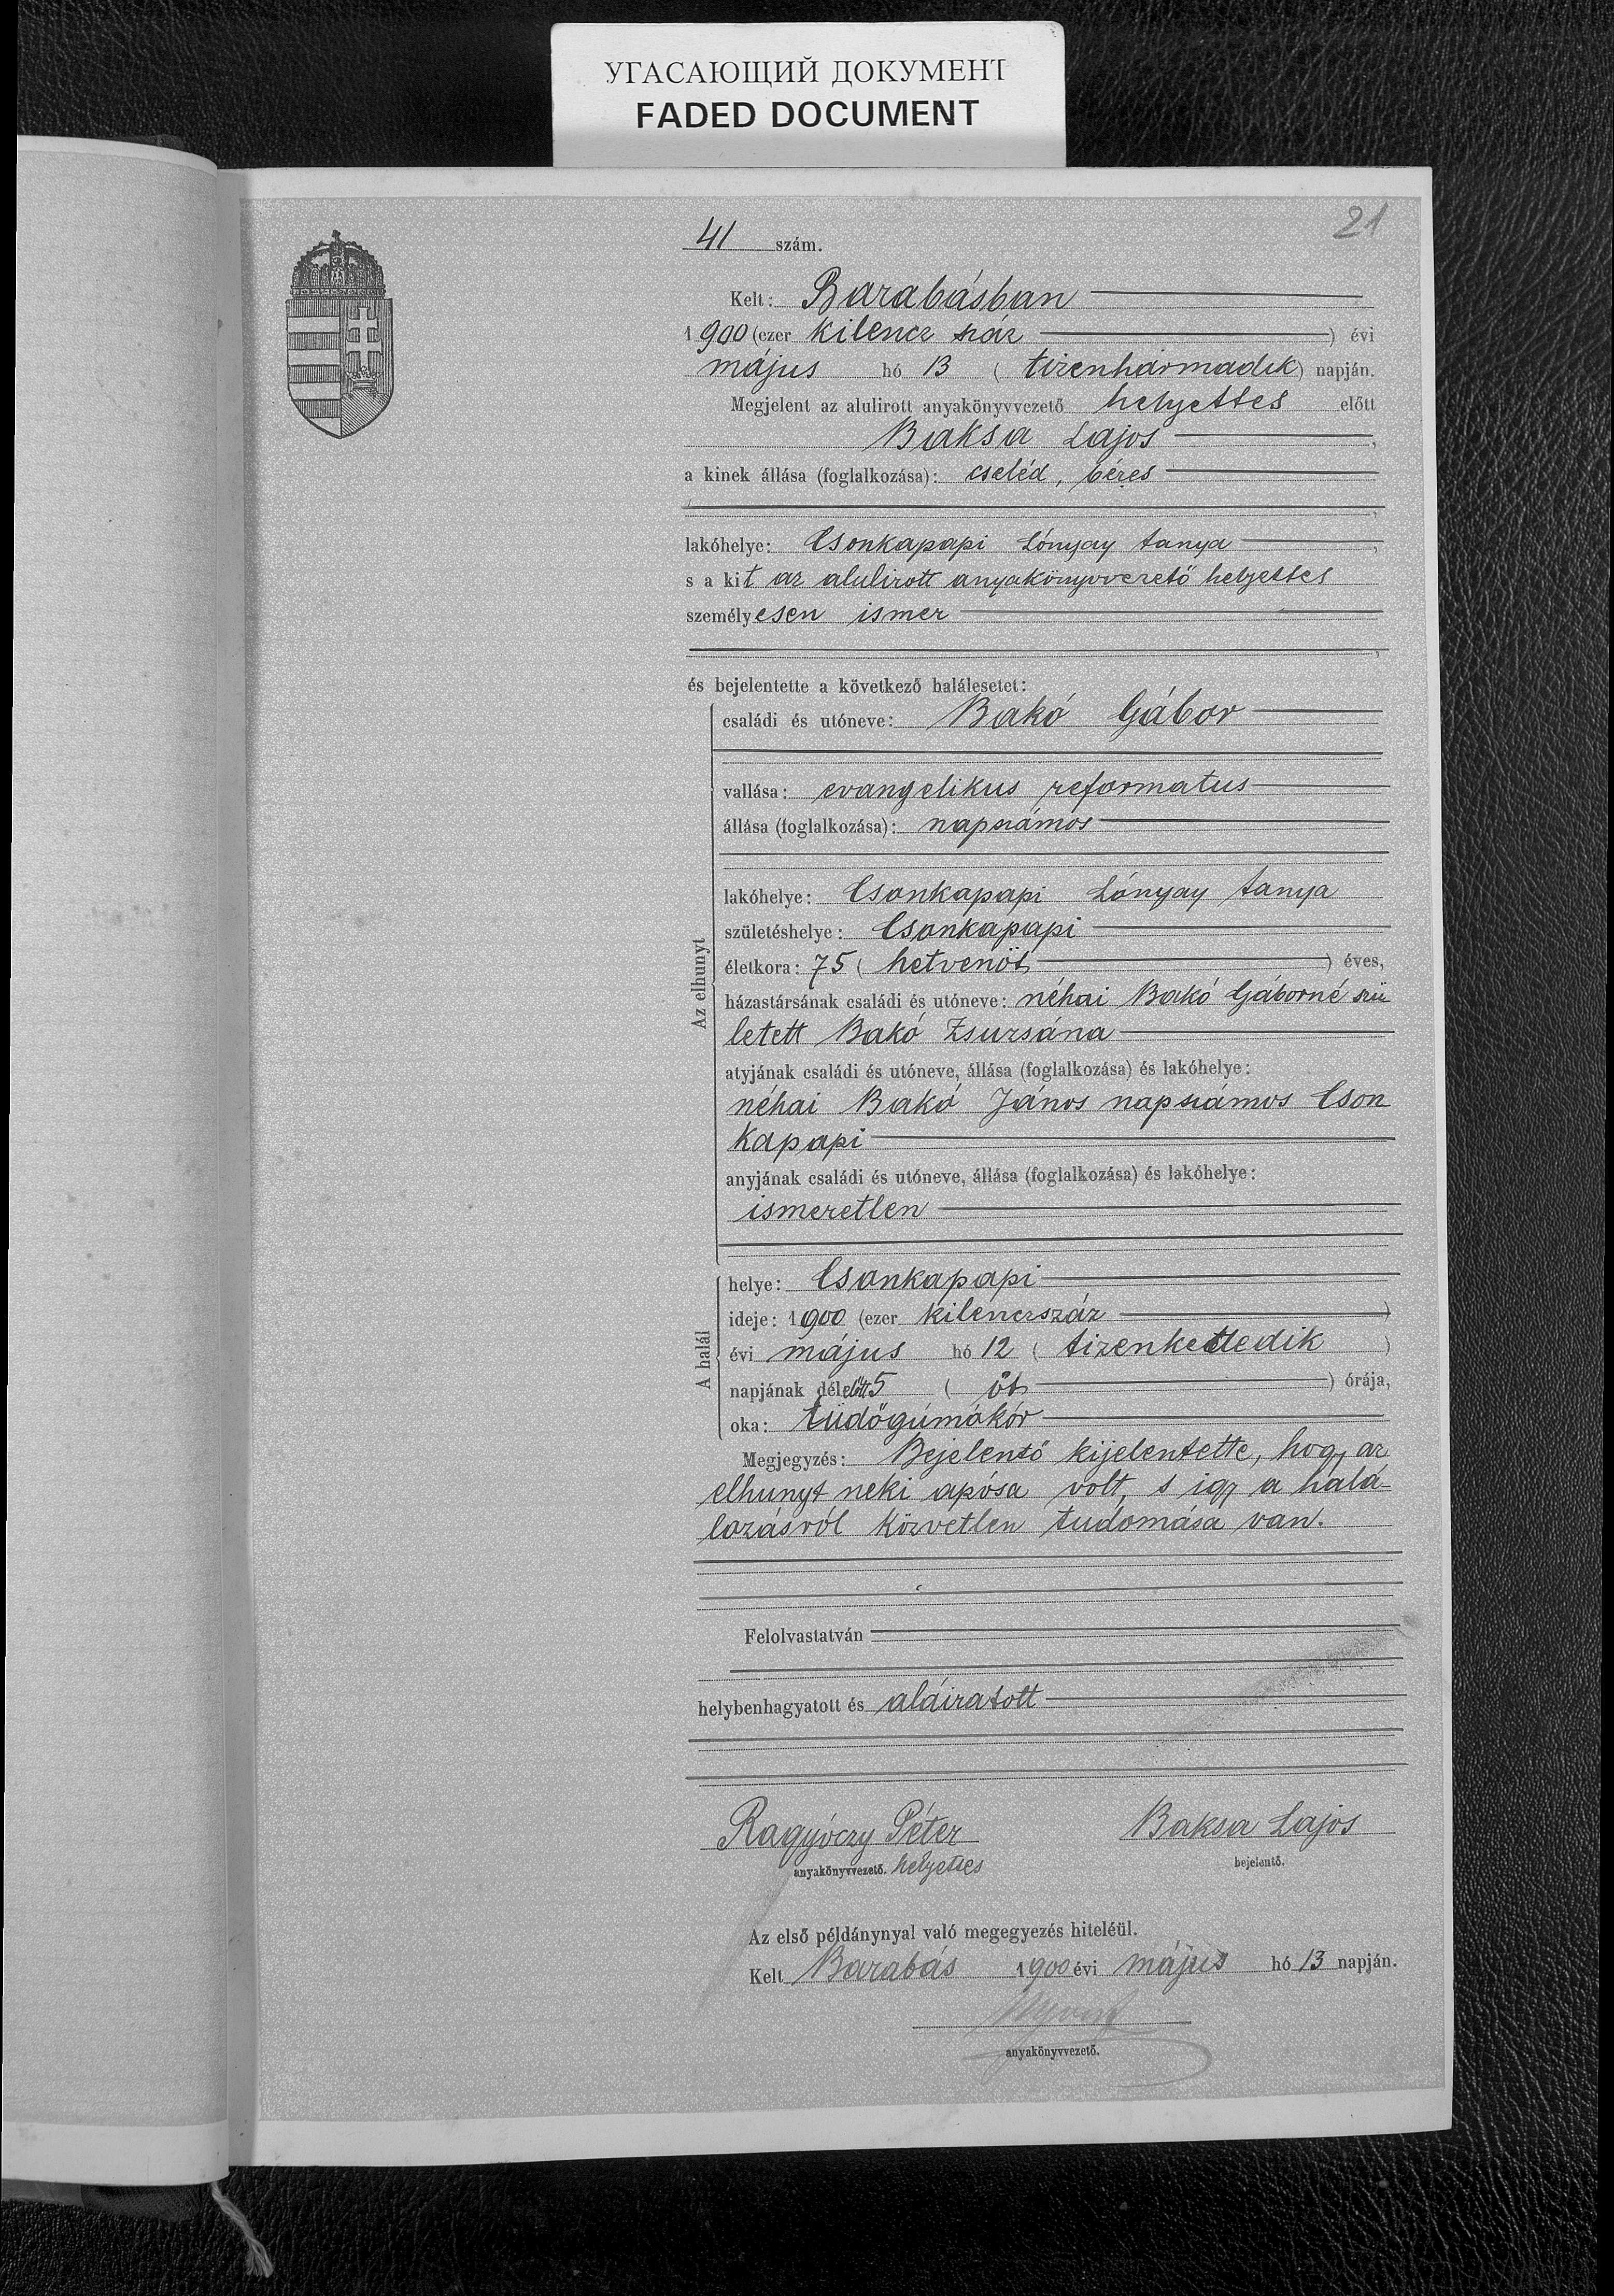 УГАСАЮЩИЙ ДОКУМЕНТ
FADED DOCUMENT
21
41 szám.
Kelt: Barabásban
1900 (ezer kilencz száz) évi
május hó 13 (tizenhármadik) napján.
Megjelent az alulirott anyakönyvvezető helyettes előtt
Baksa Lajos,
a kinek állása (foglalkozása): cseléd, béres
,
lakóhelye: Csonkapapi Lónyay tanya,
s a kit az alulirott anyakönyvvezető helyettes
személyesen ismer
,
és bejelentette a következő halálesetet:
Az elhunyt
családi és utóneve: Bakó Gábor
vallása: evangelikus reformatus
állása (foglalkozása): napszámos
lakóhelye: Csonkapapi Lónyay tanya
születéshelye: Csonkapapi
életkora: 75 (hetvenöt) éves,
házastársának családi és utóneve: néhai Bakó Gáborné szü
letett Bakó Zsuzsána
atyjának családi és utóneve, állása (foglalkozása) és lakóhelye:
néhai Bakó János napszámos Cson
kapapi
anyjának családi és utóneve, állása (foglalkozása) és lakóhelye:
ismeretlen
A halál
helye: Csonkapapi
ideje: 1900 (ezer kilenczszáz)
évi május hó 12 (tizenkettedik)
napjának délelőtt 5 (öt) órája,
oka: tüdőgümőkór
Megjegyzés: Bejelentő kijelentette, hogy az
elhunyt neki apósa volt, s igy a halá-
lozásról közvetlen tudomása van.
Felolvastatván
helybenhagyatott és aláiratott
Ragyóczy Péter Baksa Lajos
anyakönyvvezető. helyettes bejelentő.
Az első példánynyal való megegyezés hiteléül.
Kelt Barabás 1900 évi május hó 13 napján.
anyakönyvvezető.